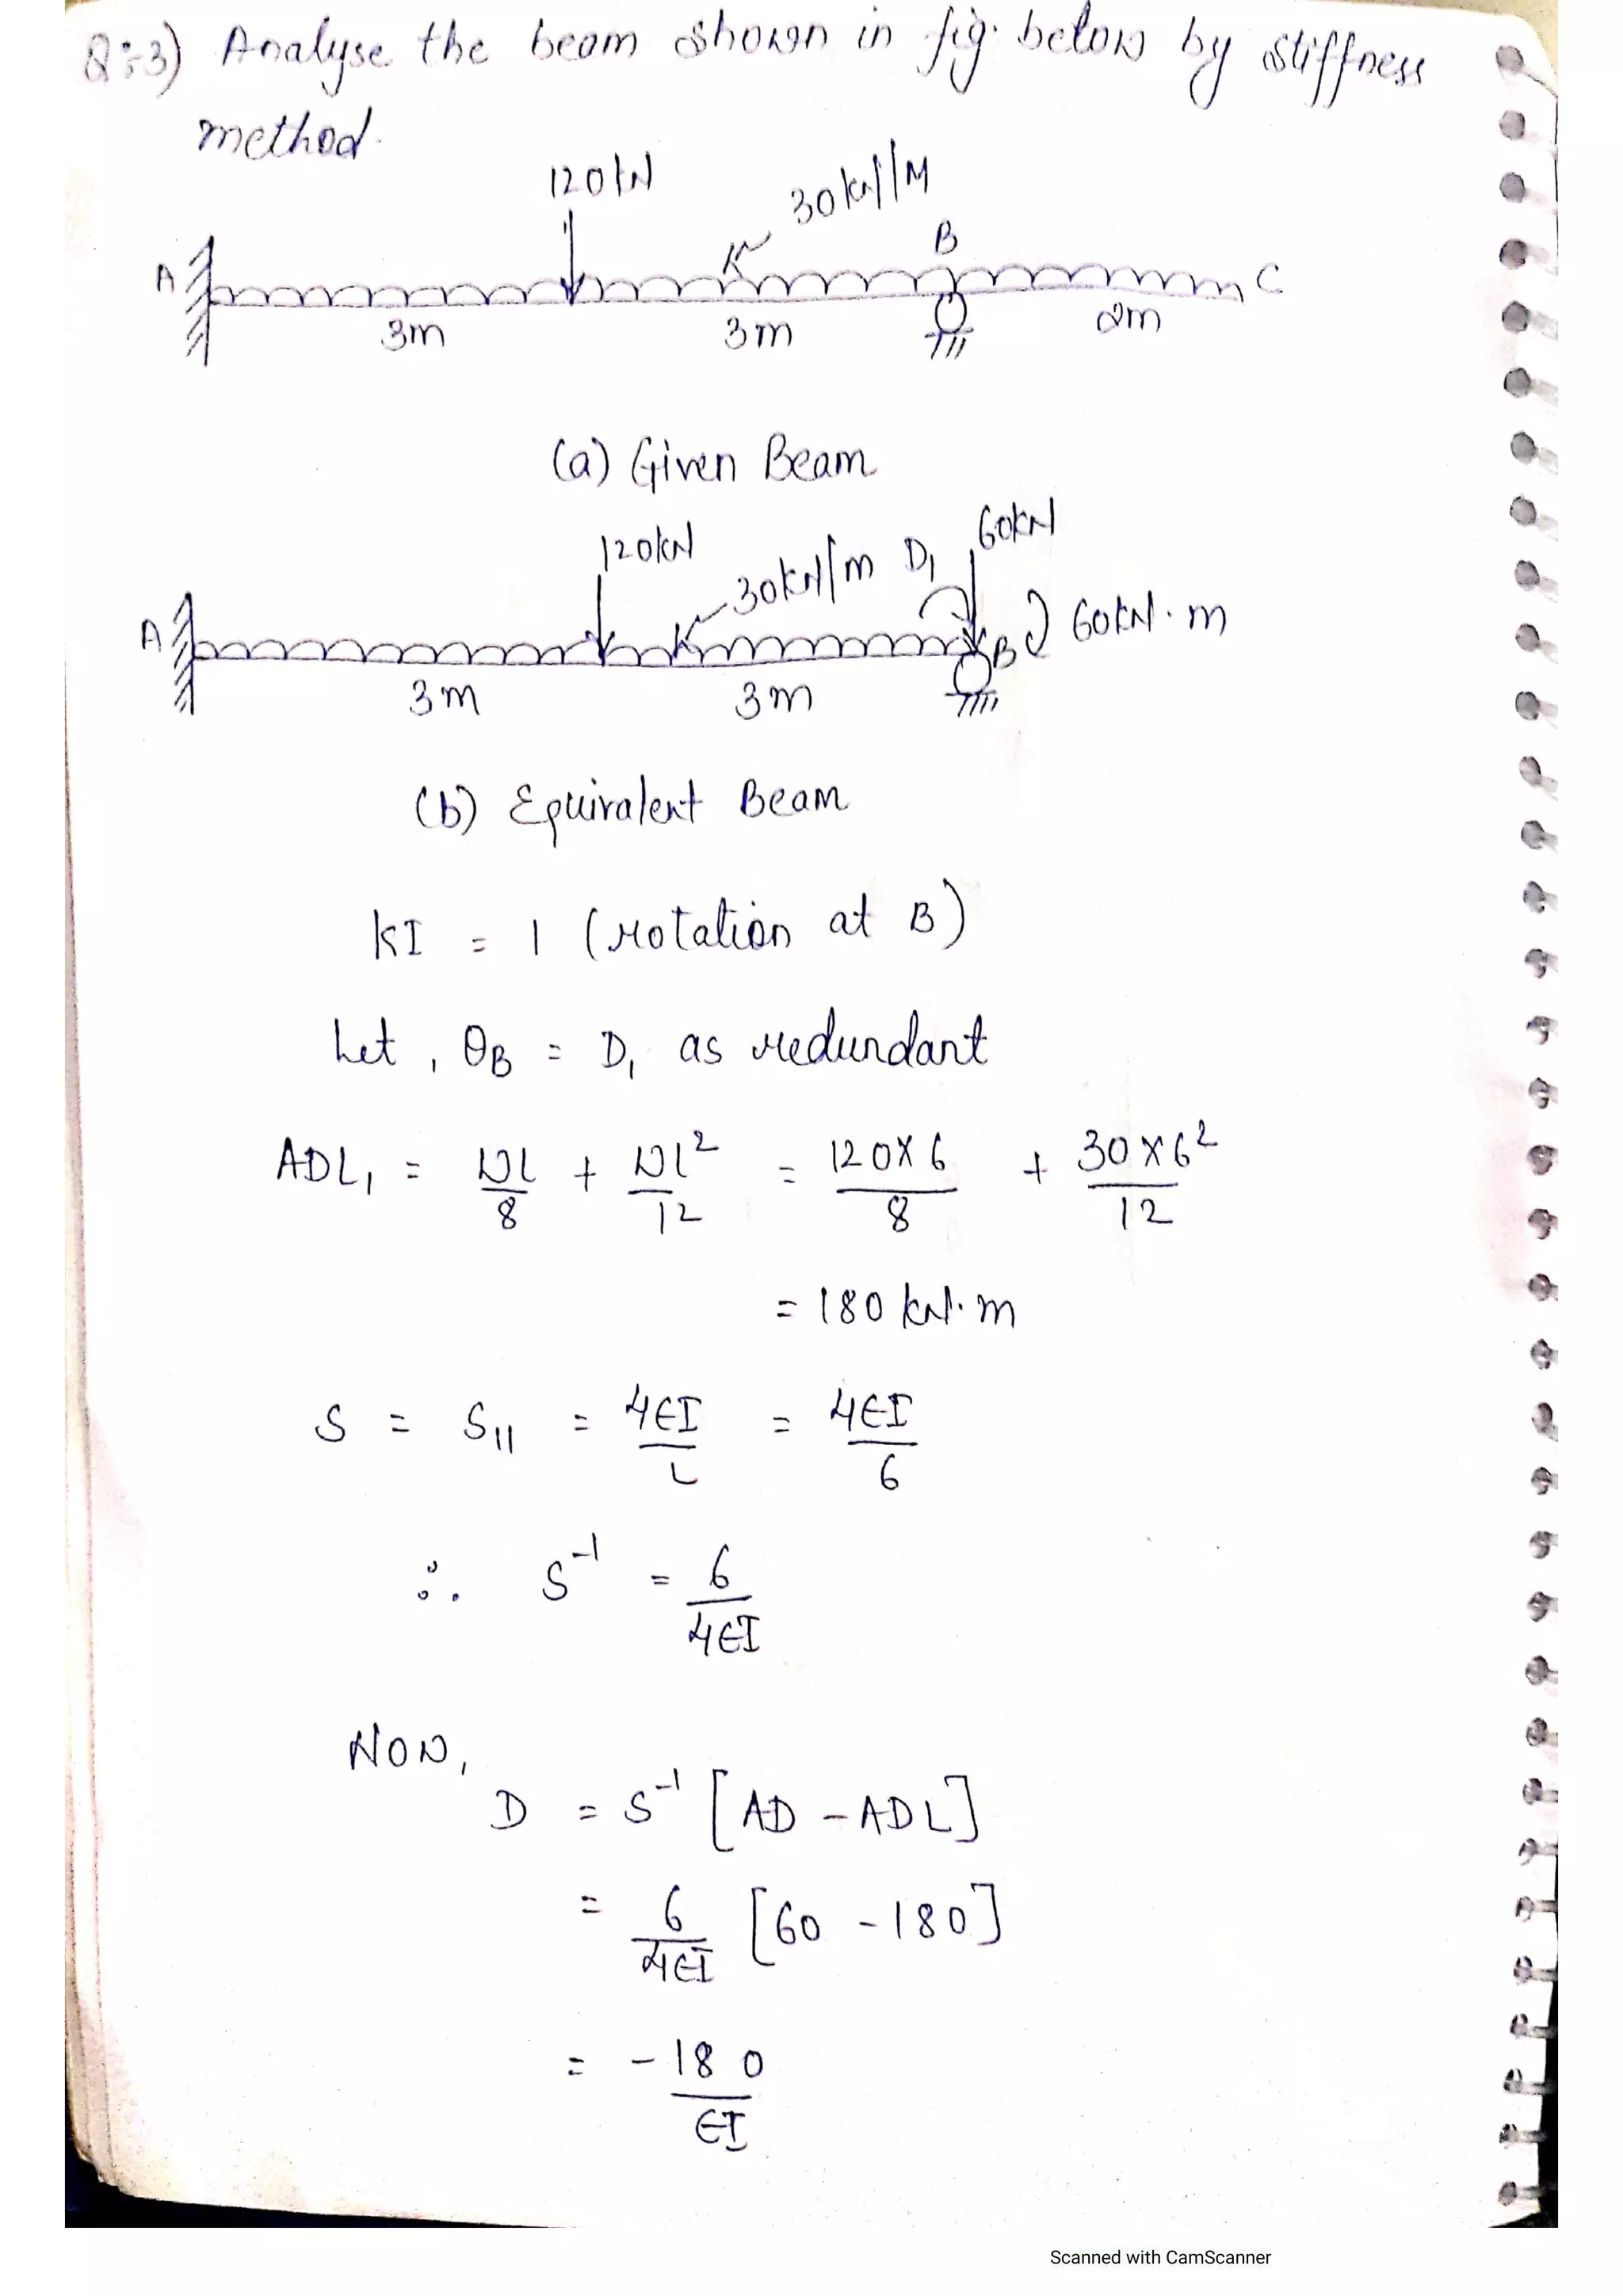 Q:-3) Analyse the beam shown in fig. below by stiffness
method.
120kN
30kN/M
A
B
C
3m
3m
2m
(a) Given Beam
120kN
30kN/m
D1
60kN
A
B
60kN.m
3m
3m
(b) Equivalent Beam
KI = 1 (rotation at B)
Let, θB = D1 as redundant
ADL1 = WL/8 + Wl²/12 = 120×6/8 + 30×6²/12
= 180 kN.m
S = S11 = 4EI/L = 4EI/6
∴ S⁻¹ = 6/4EI
Now,
D = S⁻¹ [AD - ADL]
= 6/4EI [60 - 180]
= -180/EI
Scanned with CamScanner